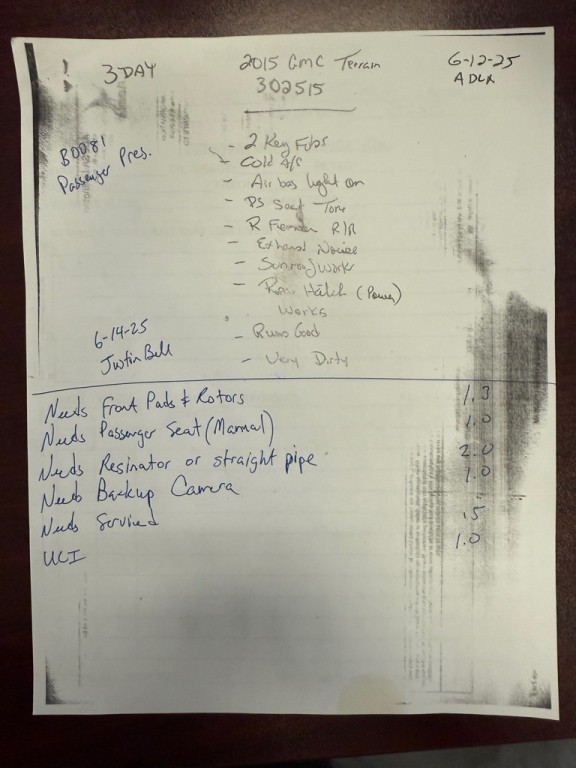 3 DAY
2015 GMC Terrain
302515
6-12-25
ADLR
B0081
Passenger Pres.
- 2 Key Fobs
- Cold A/C
- Air bag light on
- PS Seat Torn
- R Fremon R/R
- Exhaust Noise
- Sunroof works
- Rear Hatch (Power)
Works
- Runs Good
- Very Dirty
6-14-25
Justin Bell
Needs Front Pads & Rotors 1.3
Needs Passenger Seat (Manual) 1.0
Needs Resinator or straight pipe 2.0
Needs Backup Camera 1.0
Needs Serviced .5
UCI 1.0